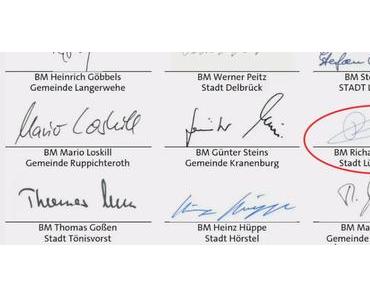 Stefan
BM Heinrich Göbbels BM Werner Peitz BM Ste
Gemeinde Langerwehe Stadt Delbrück STADT L
Mario Loskill
BM Mario Loskill BM Günter Steins BM Richa
Gemeinde Ruppichteroth Gemeinde Kranenburg Stadt Lü
Thomas Heinz Hüppe
BM Thomas Goßen BM Heinz Hüppe BM Ma
Stadt Tönisvorst Stadt Hörstel Gemeinde